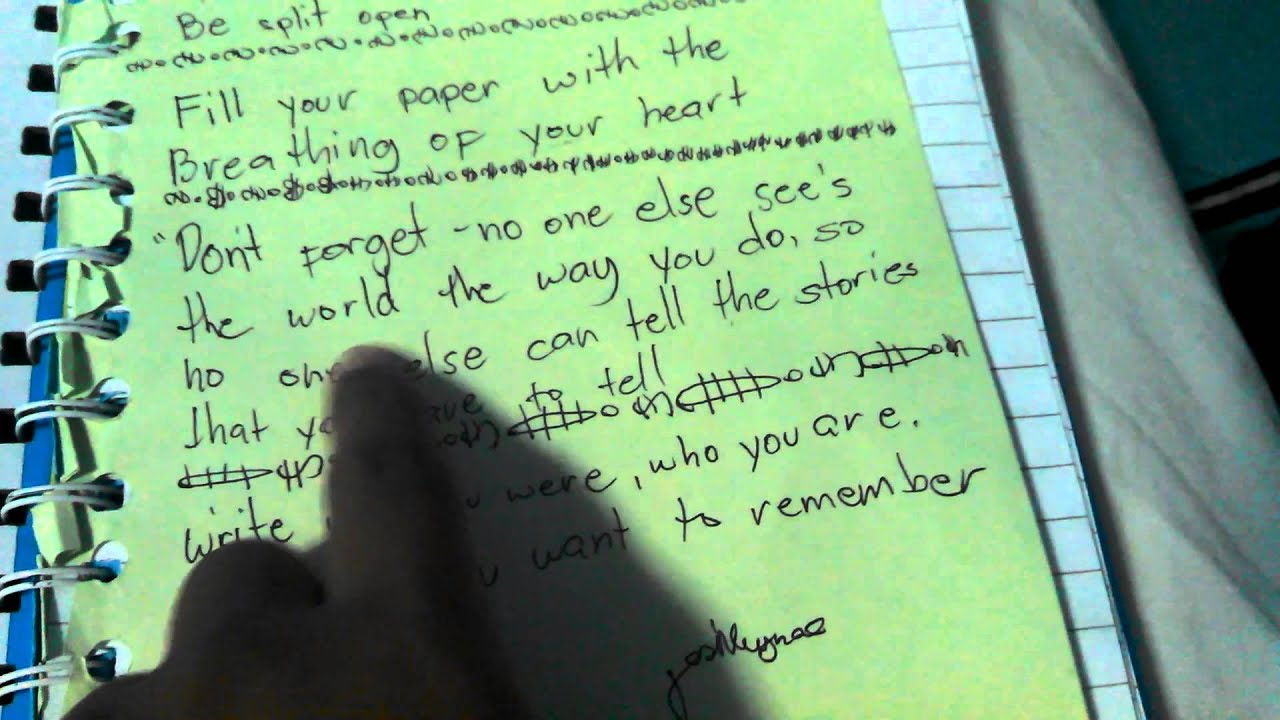 Be split open
Fill your paper with the
Breathing of your heart
"Don't forget - no one else see's
the world the way you do, so
no one else can tell the stories
that to tell
write were, who you are.
want to remember